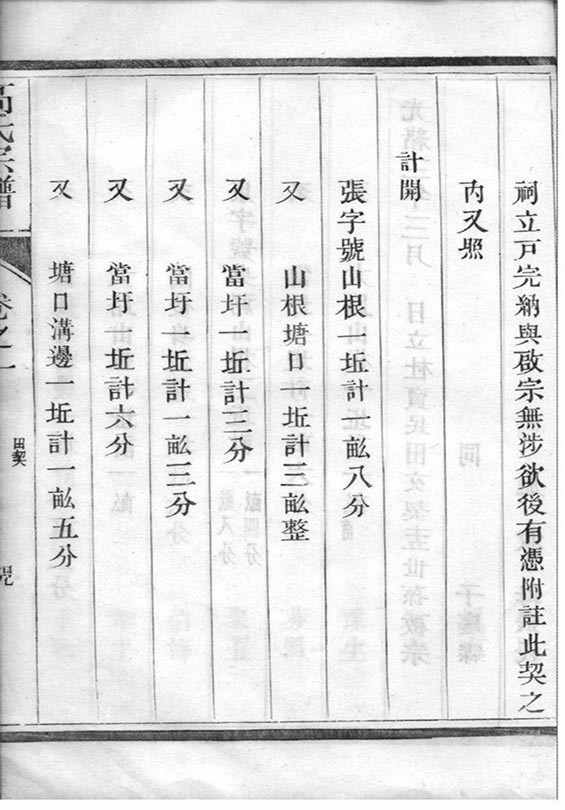 祠立戸完納與啟宗無涉欲後有憑附註此契之
內又照
計開
張字號山根一坵計一畝八分
又　山根塘口一坵計三畝整
又　當圩一坵計三分
又　當圩一坵計一畝三分
又　當圩一坵計六分
又　塘口溝邊一坵計一畝五分
氏宗譜
卷之一
田契